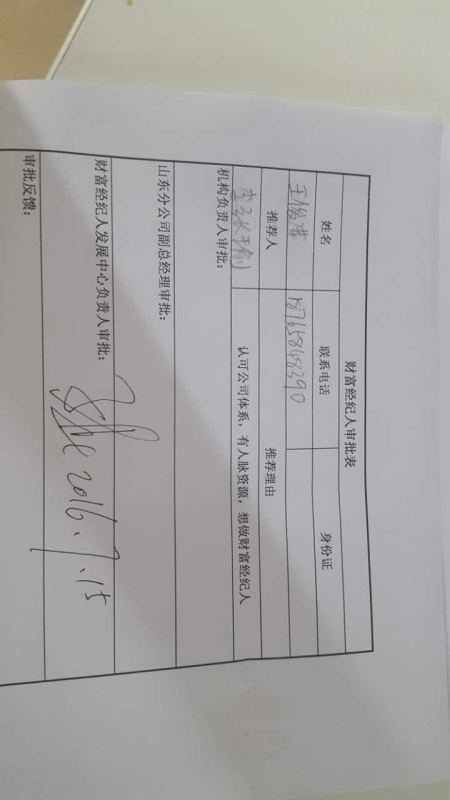 财富经纪人审批表
姓名 联系电话 身份证
王俊岩 18765848390
推荐人 推荐理由
认可公司体系，有人脉资源，想做财富经纪人
机构负责人审批：
山东分公司副总经理审批：
财富经纪人发展中心负责人审批：
2016.7.15
审批反馈：